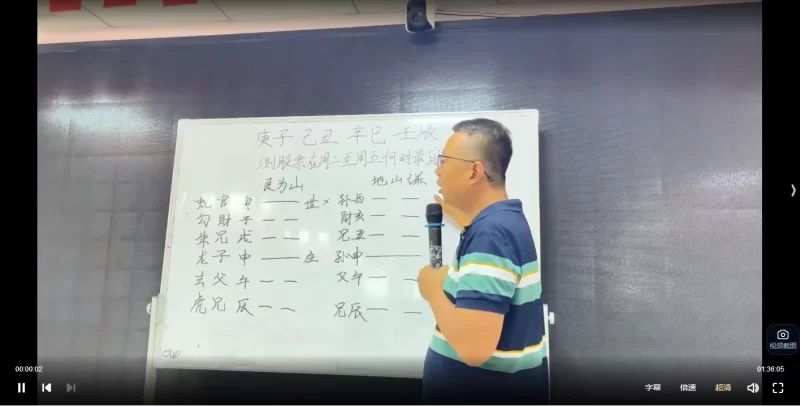 庚子 己丑 辛巳 壬辰
测股票在周二至周五何时最宜
艮为山 地山谦
蛇官寅 世× 孙酉
勾财子 财亥
朱兄戌 兄丑
龙子申 应 孙申
玄父午 父午
虎兄辰 兄辰
视频截图
00:00:02
01:36:05
字幕 倍速 超清